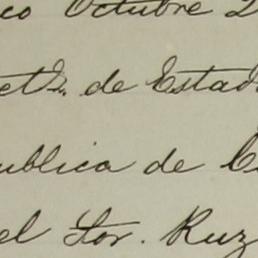 co Octubre 2
et? de Estado
ública de C
el Sor. Ruz